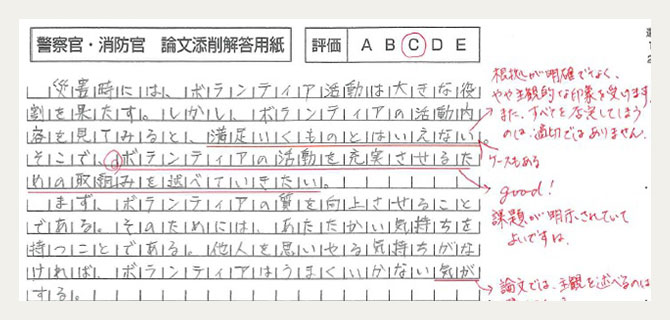 警察官・消防官 論文添削解答用紙
評価 A B C D E
災害時には、ボランティア活動は大きな役
割を果たす。しかし、ボランティアの活動内
容を見てみると、満足いくものとはいえない。
そこで、ボランティアの活動を充実させるた
めの取組みを述べていきたい。
まず、ボランティアの質を向上させること
である。そのためには、あたたかい気持ちを
持つことである。他人を思いやる気持ちがな
ければ、ボランティアはうまくいかない気が
する。
根拠が明確でなく、
やや主観的な印象を受けます。
また、すべてを否定してしまう
のは、適切ではありません。
ケースもある
good!
課題が明示されていて
よいですね。
論文では、主観を述べるのは